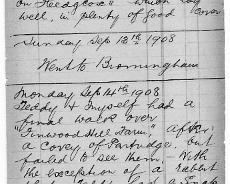 on "Hedgelow" which lay
well, in plenty of good cover
Sunday Sep 13th 1908
Went to Birmingham
Monday Sep 14th 1908
Teddy & Myself had a
final walk over
"Linwood Hill Farm", after
a covey of Partridge, but
failed to see them. With
the exception of a rabbit